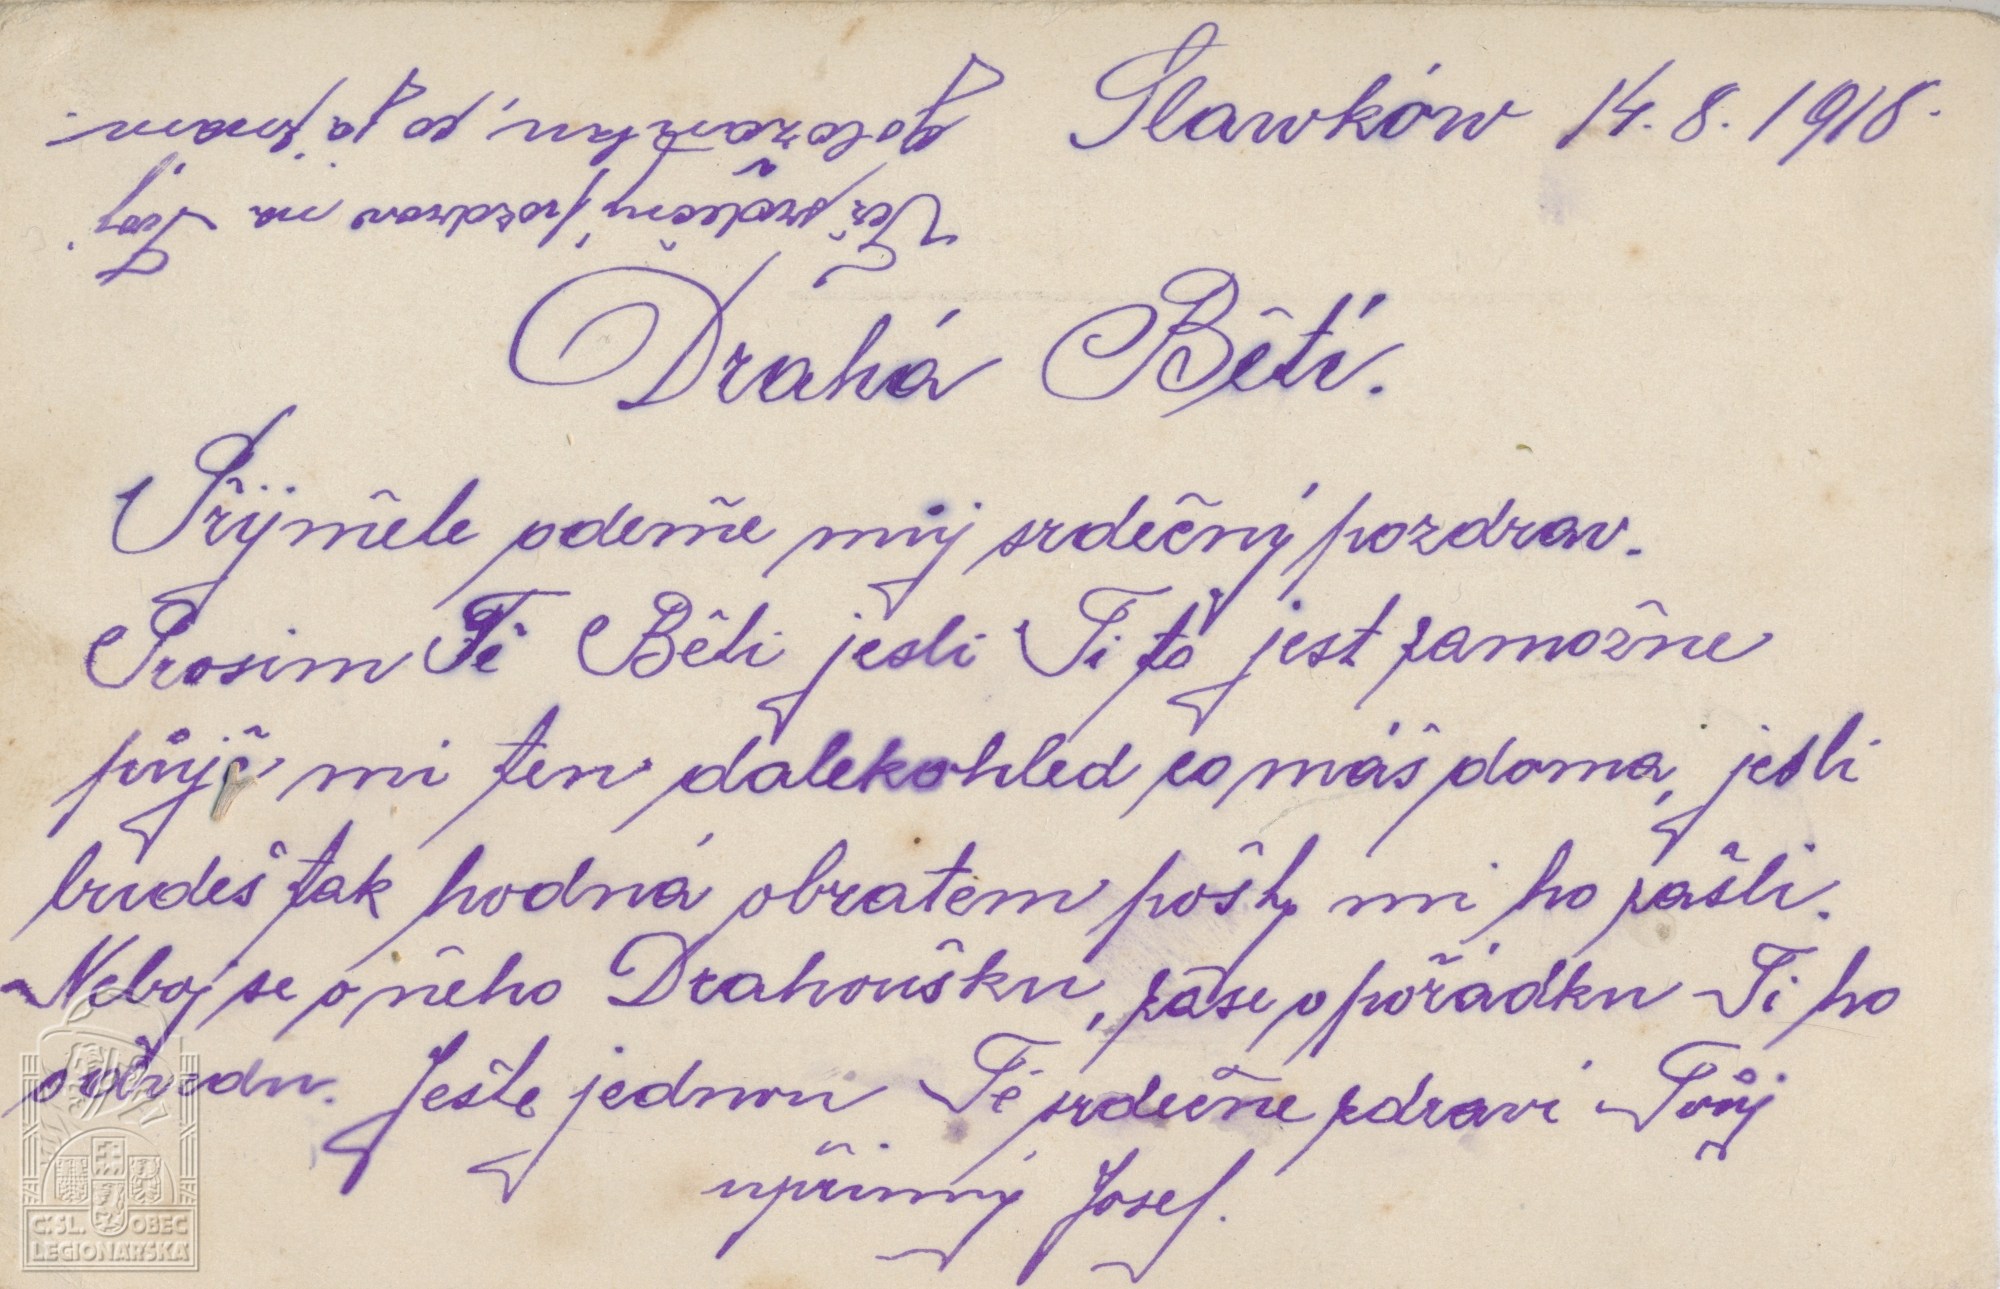 Slawków 14. 8. 1918.
Též srdečný pozdrav na Tvoji
co já znám
Drahá Běti.
Přijměte odemě můj srdečný pozdrav.
Prosim Tě Běti jesli Ti to jest zamožne
pujč mi ten dalekohled co máš doma, jesli
budeš tak hodná obratem pošty mi ho zašli.
Neboj se o něho Drahoušku, zase v pořádku Ti ho
odvedu. Ještě jednou Tě srdečně zdraví Tvůj
upřimný Josef.
Č.SL. OBEC
LEGIONÁŘSKÁ